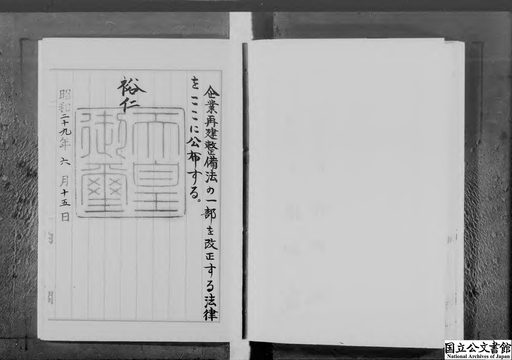 企業再建整備法の一部を改正する法律
をここに公布する。
裕仁
天皇御璽
昭和二十九年六月十五日
国立公文書館
National Archives of Japan